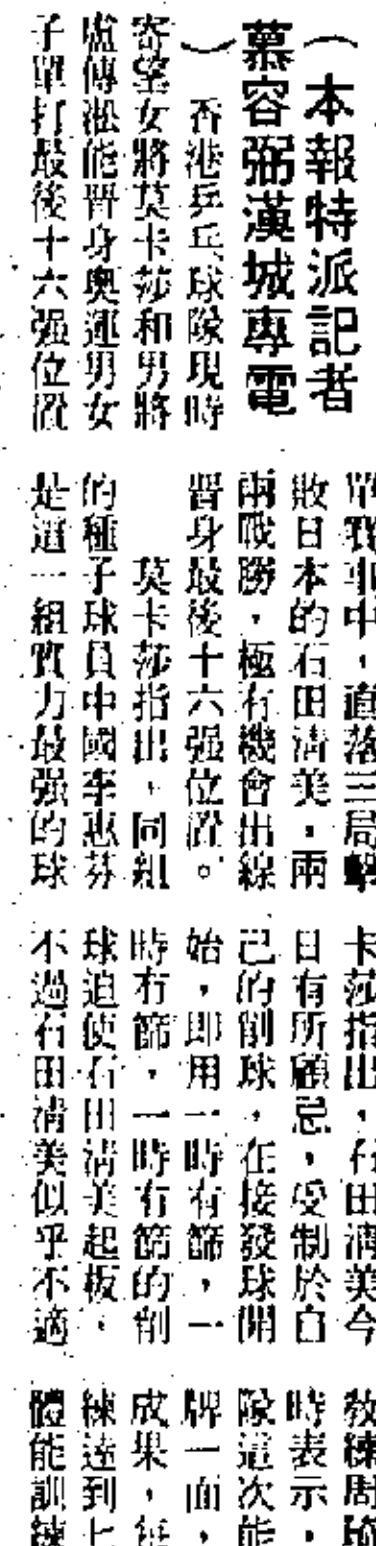 （本報特派記者
慕容弼漢城專電
）　香港乒乓球隊現時
寄望女將莫卡莎和男將
盧傳淞能晉身奧運男女
子單打最後十六强位置
單戰事中，直落三局擊
敗日本的石田清美，兩
兩戰勝，極有機會出線
晉身最後十六强位置。
莫卡莎指出，同組
的種子球員中國李惠芬
是這一組實力最强的球
卡莎指出，石田清美今
日有所顧忌，受制於自
己的削球，在接發球開
始，即用一時有篩，一
時冇篩，一時有篩的削
球迫使石田清美起板，
不過石田清美似乎不適
教練周
時表示，
隊這次能
牌一面，
成果，
練達到七
體能訓練